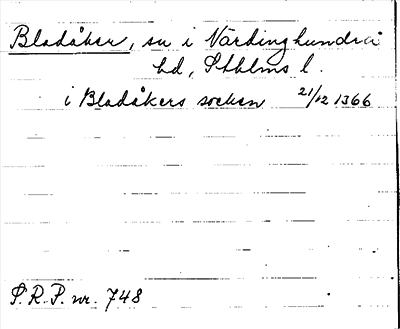 Bladåker, sn i Närdinghundra
hd, Sthlms l.
i Bladåkers socken 21/12 1366
S.R.P. nr. 748